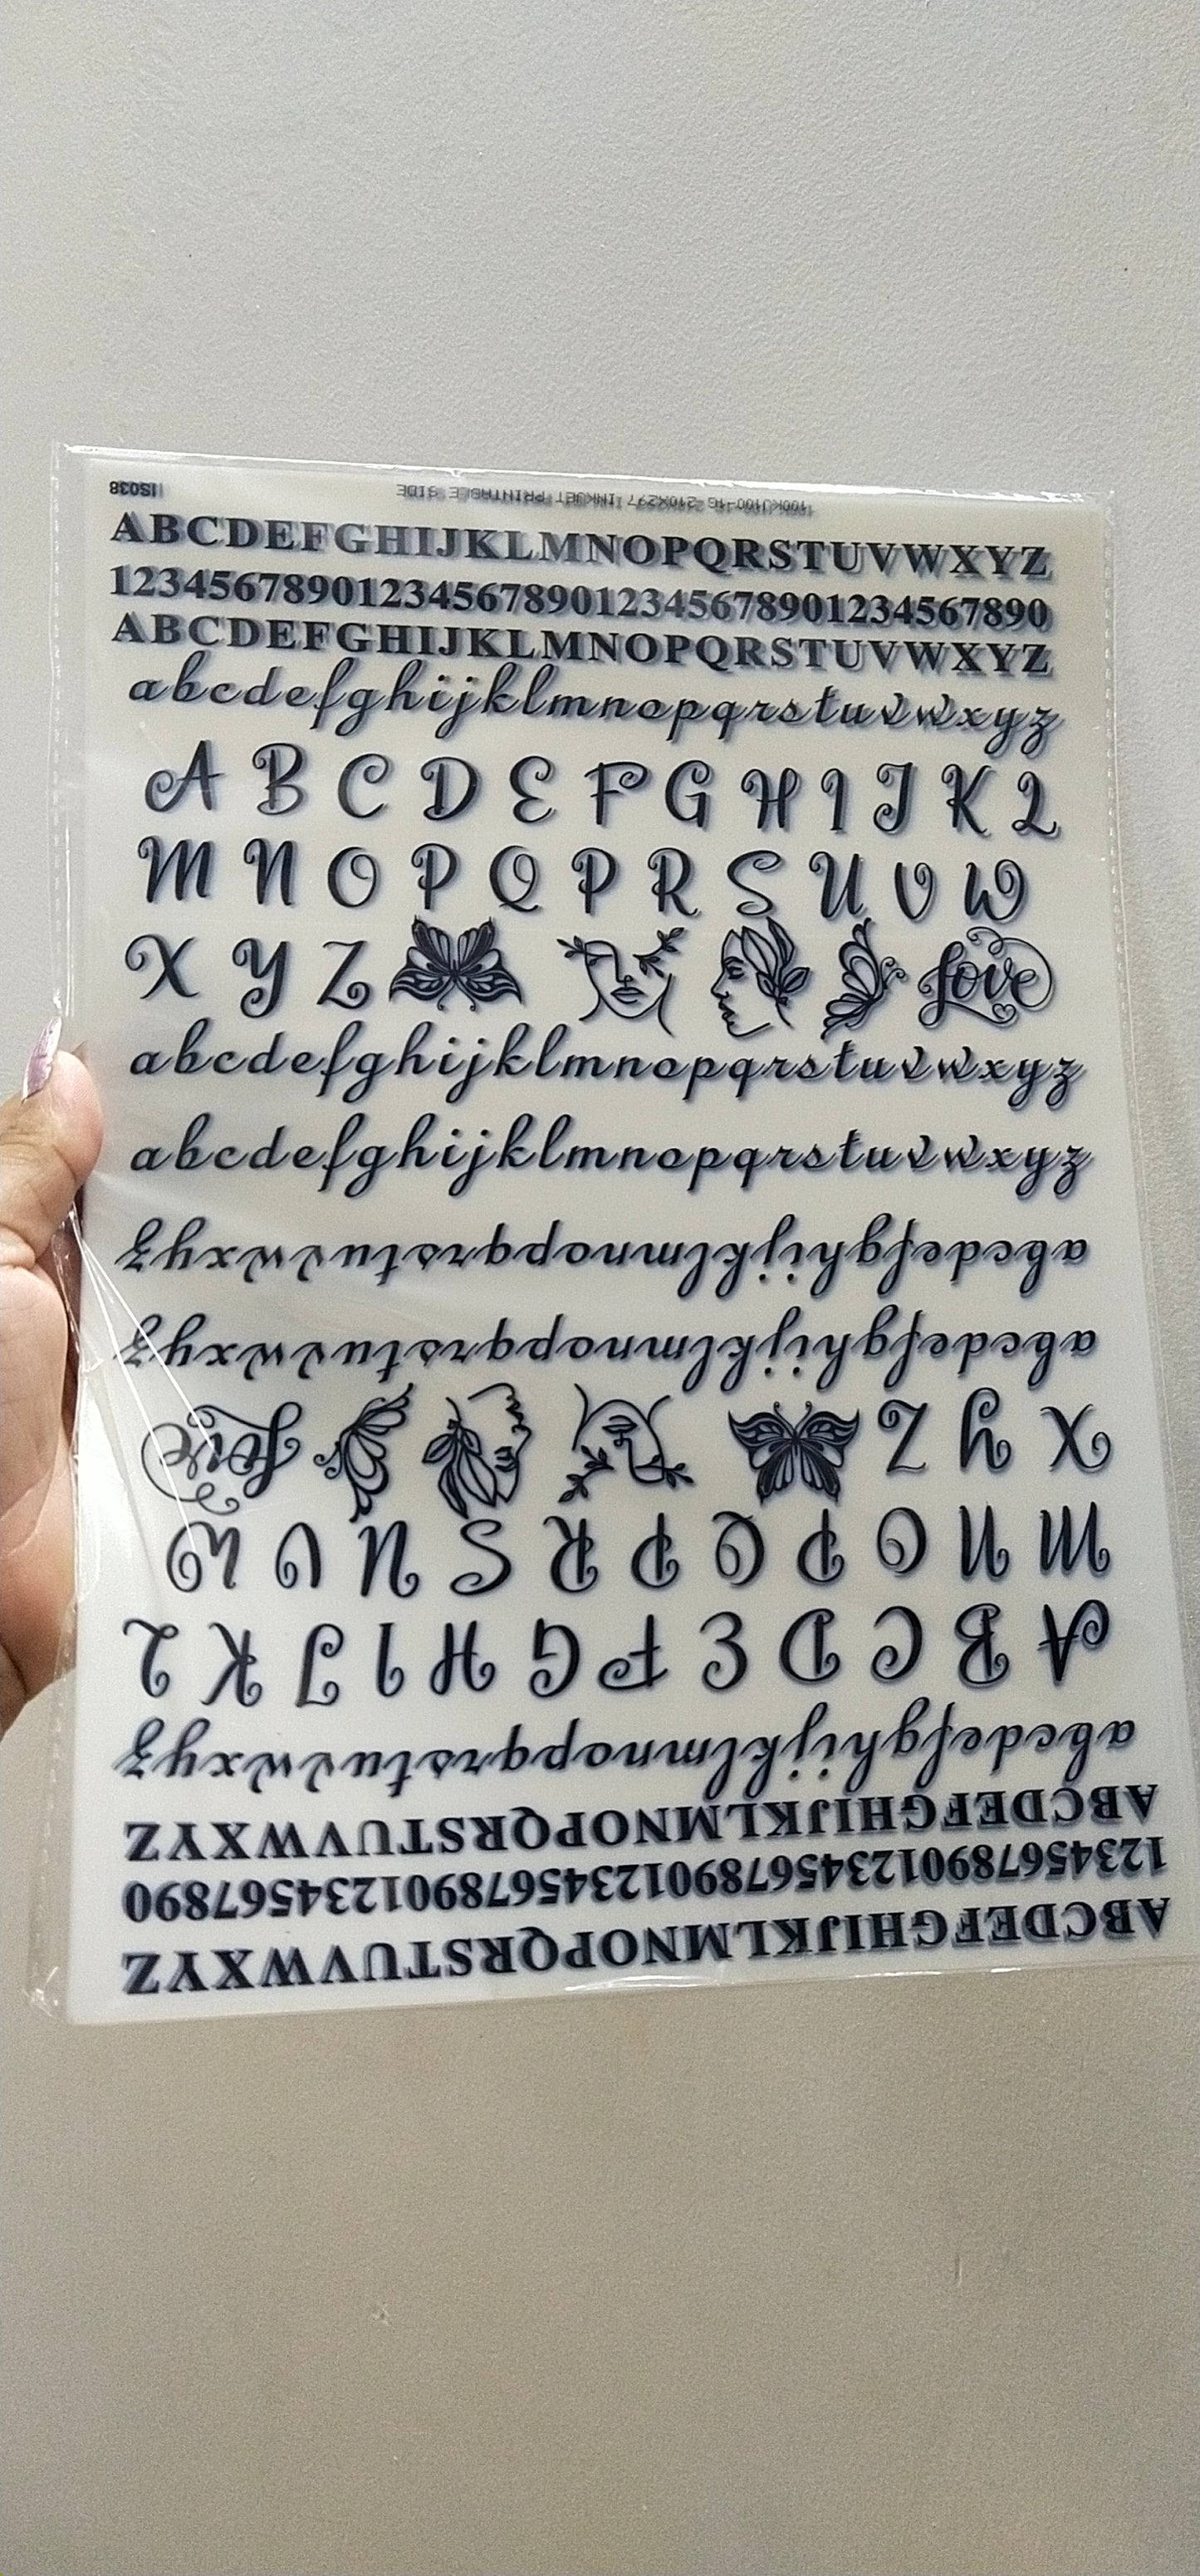 IS038 100KJ100-1G 210X297 INKJET PRINTABLE SIDE
ABCDEFGHIJKLMNOPQRSTUVWXYZ
1234567890123456789012345678901234567890
ABCDEFGHIJKLMNOPQRSTUVWXYZ
abcdefghijklmnopqrstuvwxyz
A B C D E F G H I J K L
M N O P Q P R S U V W
X Y Z Love
abcdefghijklmnopqrstuvwxyz
abcdefghijklmnopqrstuvwxyz
abcdefghijklmnopqrstuvwxyz
abcdefghijklmnopqrstuvwxyz
X Y Z Love
M N O P Q P R S U V W
A B C D E F G H I J K L
abcdefghijklmnopqrstuvwxyz
ABCDEFGHIJKLMNOPQRSTUVWXYZ
1234567890123456789012345678901234567890
ABCDEFGHIJKLMNOPQRSTUVWXYZ